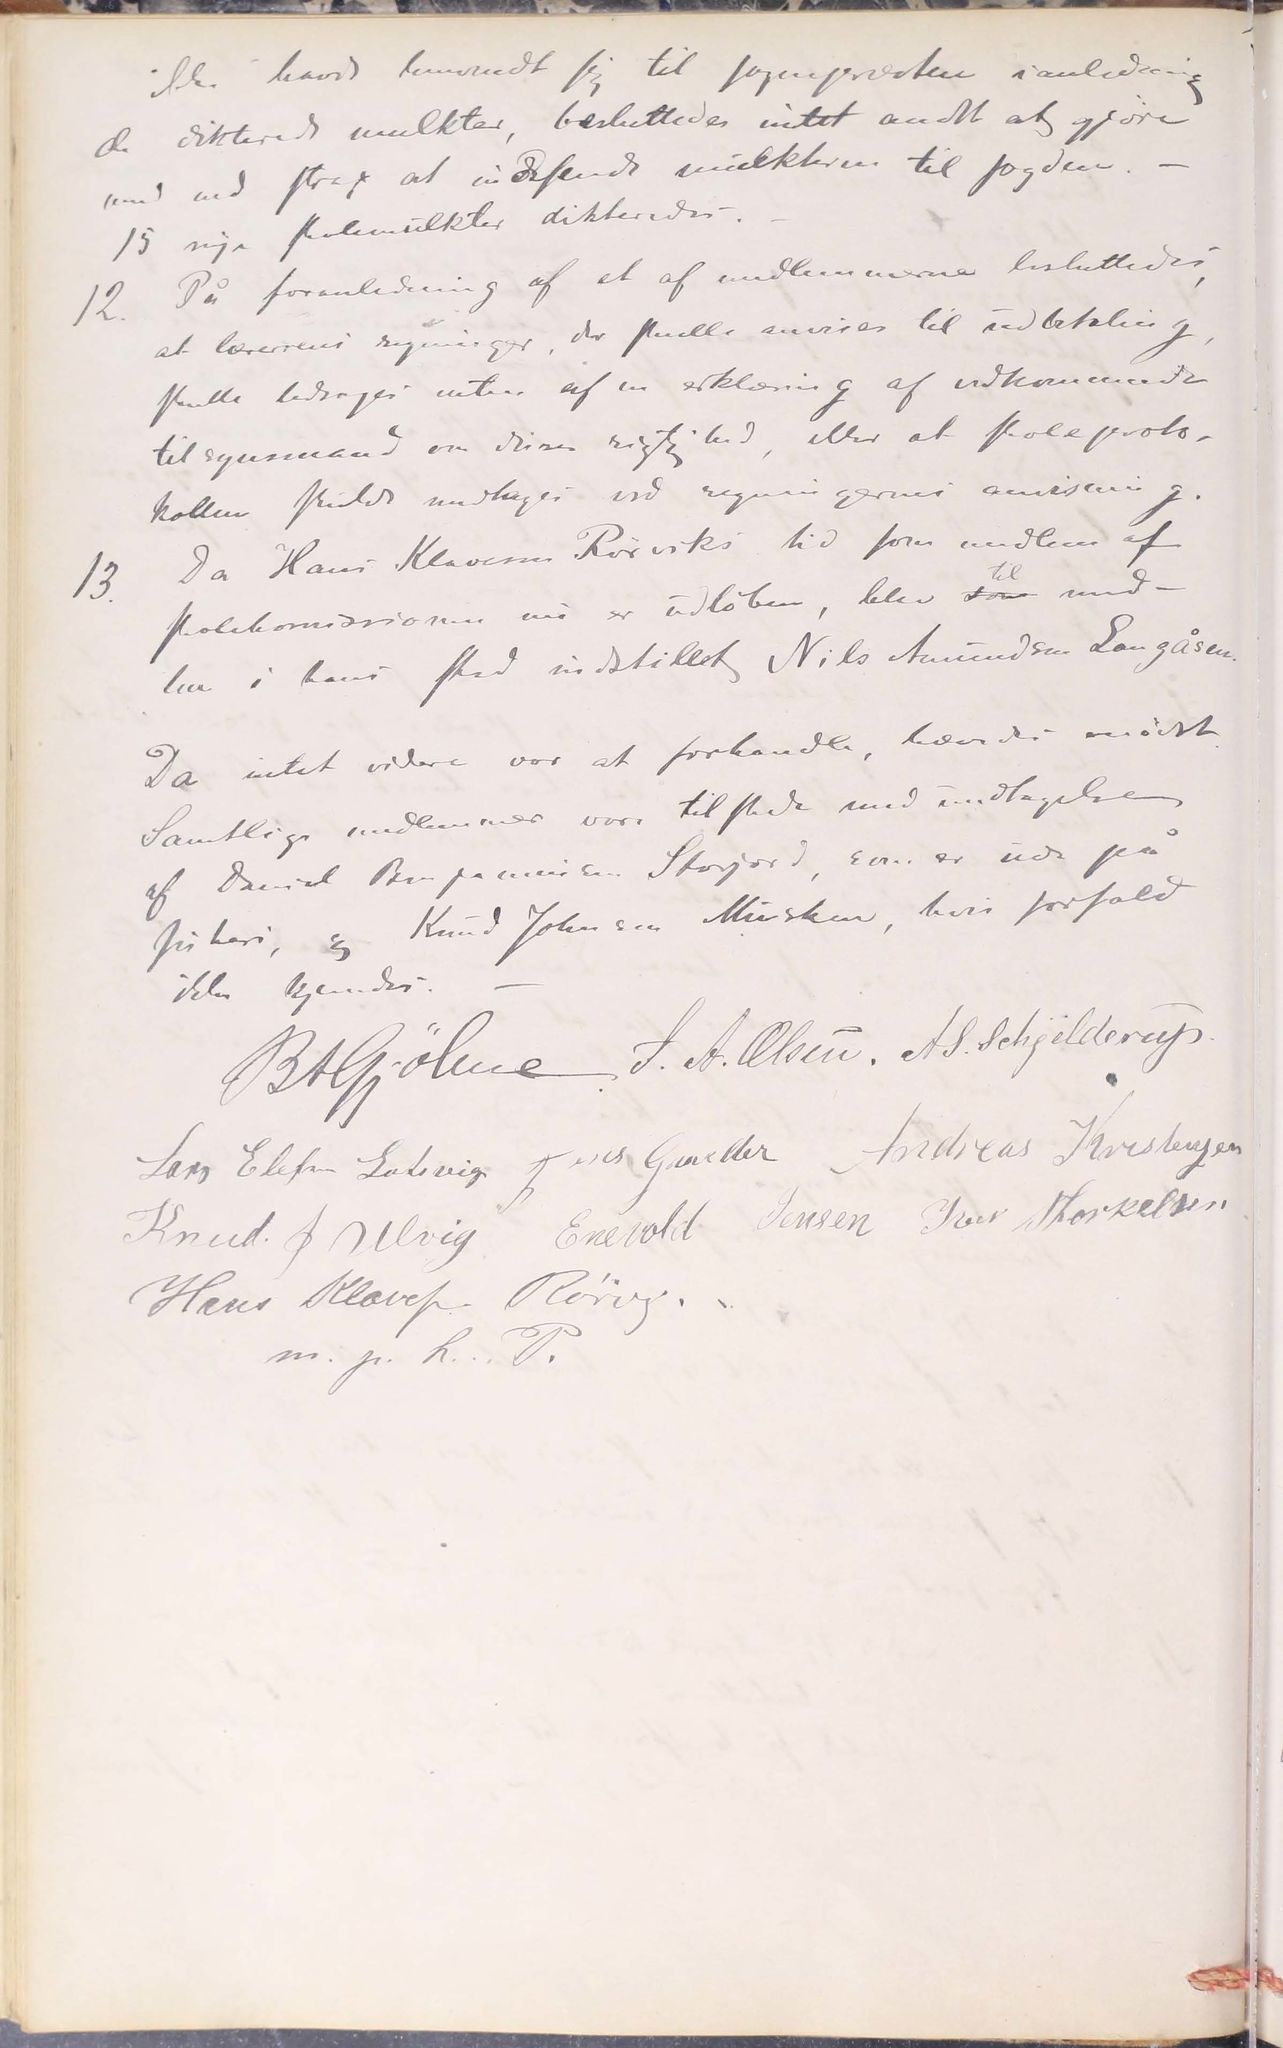 ikke havde henvendt sig til sognepræsten i anledning
de dikterede mulkter, besluttedes intet andet at gjöre
med end strax at indsende mulkterne til fogden. –
15 nye skolemulkter dikteredes. –
12. På foranledning af et af medlemmerne besluttedes,
at lærerens regninger, der skulle anvises til udbetaling,
skulle ledsages enten af en erklæring af vedkommende
tilsynsmand om deres rigtighed, eller at skoleproto-
kollen skulde medtages ved regningernes anvisning.
13. Da Hans Klavesen Rörviks tid som medlem af
skolekomissionen nu er udløben, blev som til med-
lem i hans sted indstillet Nils Amundsen Langåsen.
Da intet videre var at forhandle, hævedes mödet.
Samtlige medlemmer vare tilstede med undtagelse
af Daniel Benjaminsen Storjord, som er ude på
fiskeri, og Knud Johnsen Musken, hvis forfald
ikke kjendes. –
B A Gjölme S. A. Olsen. A S. Schjelderup.
Lars Elefsen Jens Andreas Kristensen
Knud. J Ulvig Enevold Jensen Iver Thorkelsen
Hans Klaves. Rörvg.
m. p. h. P.